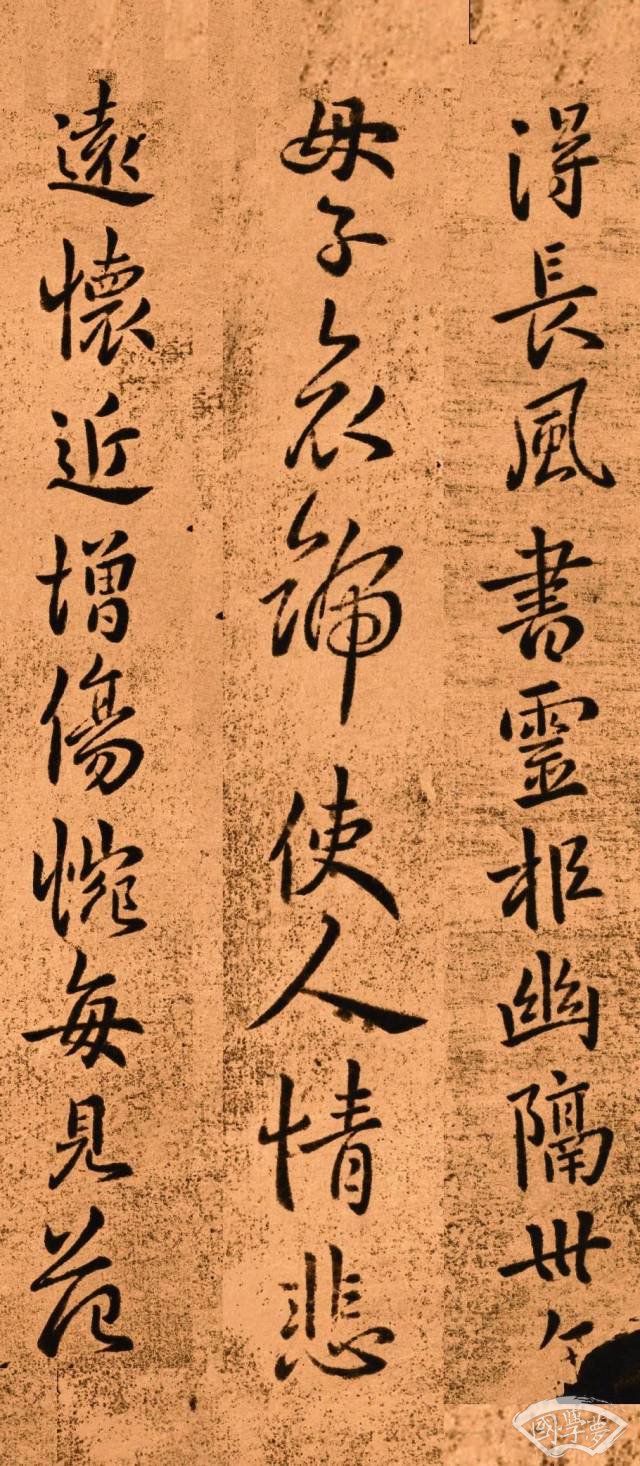 得長風書靈柩幽隔卅
母子哀號使人情悲
遠懷近增傷惋每見范
國學夢